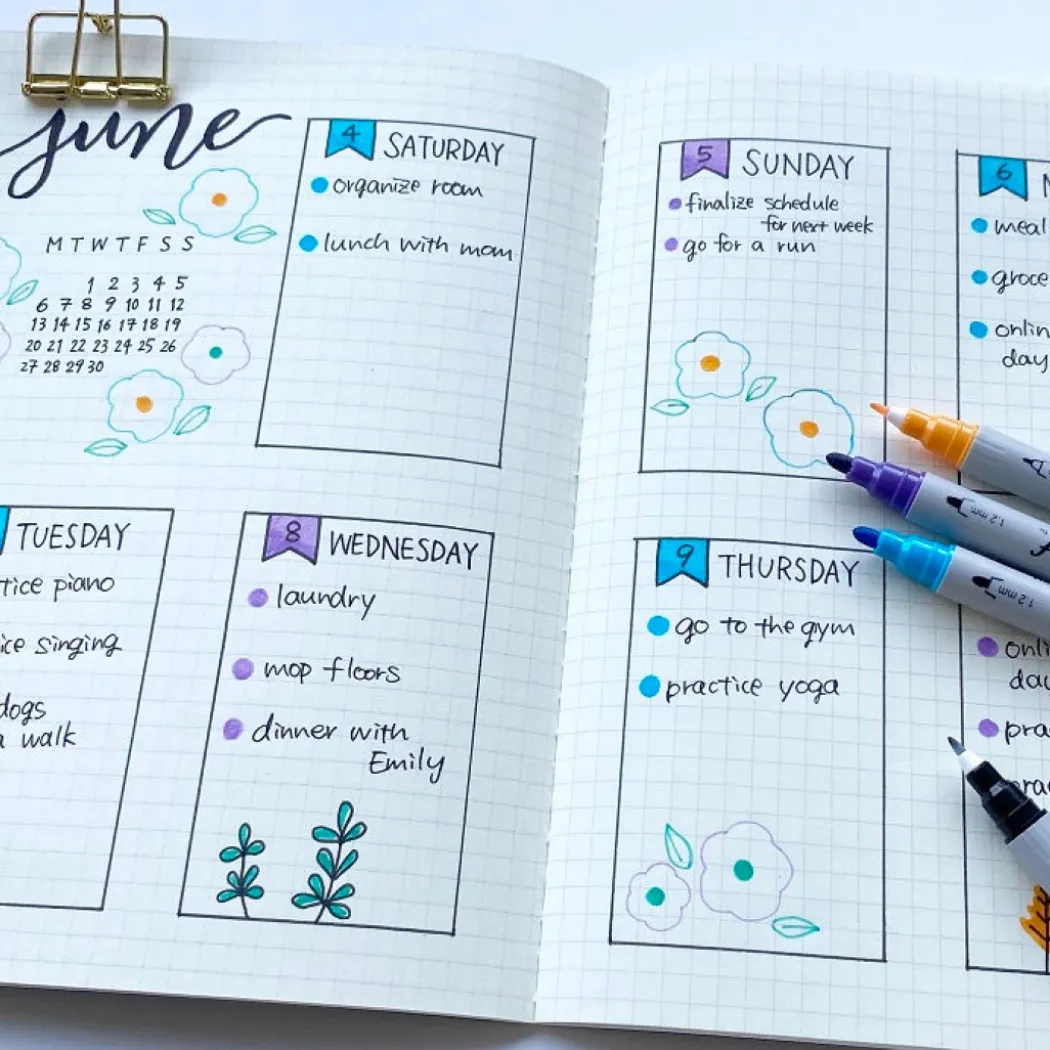 june
M T W T F S S
1 2 3 4 5
6 7 8 9 10 11 12
13 14 15 16 17 18 19
20 21 22 23 24 25 26
27 28 29 30
4 SATURDAY
organize room
lunch with mom
TUESDAY
tice piano
ice singing
dogs
a walk
8 WEDNESDAY
laundry
mop floors
dinner with
Emily
5 SUNDAY
finalize schedule
for next week
go for a run
6 M
meal
groce
onlin
day
9 THURSDAY
go to the gym
practice yoga
onli
day
pra
prac
1.2 mm
1.2 mm